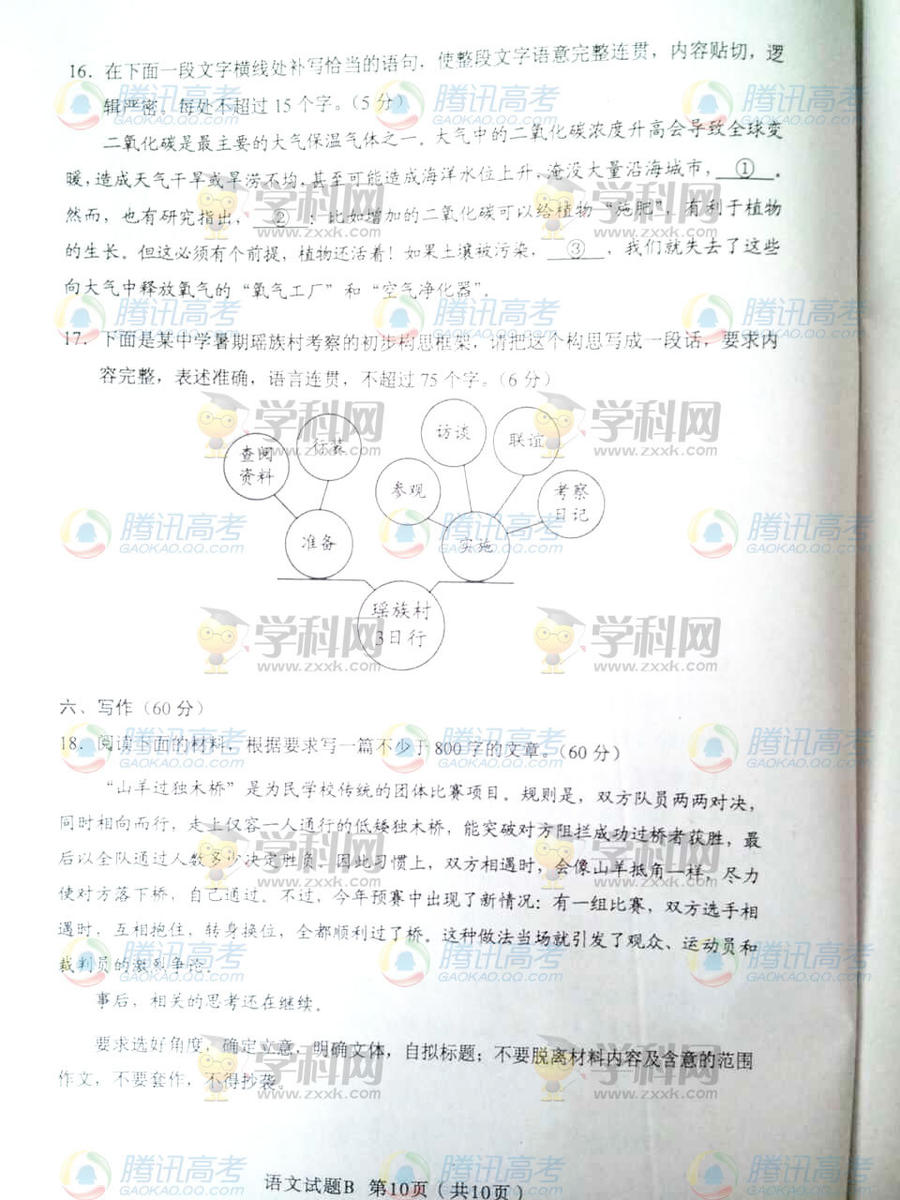 16. 在下面一段文字横线处补写恰当的语句,使整段文字语意完整连贯,内容贴切,逻
辑严密。每处不超过15个字。(5分)
二氧化碳是最主要的大气保温气体之一。大气中的二氧化碳浓度升高会导致全球变
暖,造成天气干旱或旱涝不均,甚至可能造成海洋水位上升,淹没大量沿海城市,①。
然而,也有研究指出,②:比如增加的二氧化碳可以给植物“施肥”,有利于植物
的生长。但这必须有个前提,植物还活着!如果土壤被污染,③,我们就失去了这些
向大气中释放氧气的“氧气工厂”和“空气净化器”。
17. 下面是某中学暑期瑶族村考察的初步构思框架,请把这个构思写成一段话,要求内
容完整,表述准确,语言连贯,不超过75个字。(6分)
查阅
资料
行装
准备
参观
访谈
联谊
考察
日记
实施
瑶族村
3日行
六、写作(60分)
18. 阅读下面的材料,根据要求写一篇不少于800字的文章。(60分)
“山羊过独木桥”是为民学校传统的团体比赛项目。规则是,双方队员两两对决,
同时相向而行,走上仅容一人通行的低矮独木桥,能突破对方阻拦成功过桥者获胜,最
后以全队通过人数多少决定胜负。因此习惯上,双方相遇时,会像山羊抵角一样,尽力
使对方落下桥,自己通过。不过,今年预赛中出现了新情况:有一组比赛,双方选手相
遇时,互相抱住,转身换位,全都顺利过了桥。这种做法当场就引发了观众、运动员和
裁判员的激烈争论。
事后,相关的思考还在继续。
要求选好角度,确定立意,明确文体,自拟标题;不要脱离材料内容及含意的范围
作文,不要套作,不得抄袭。
语文试题B 第10页(共10页)
腾讯高考
GAOKAO.QQ.com
学科网
www.zxxk.com